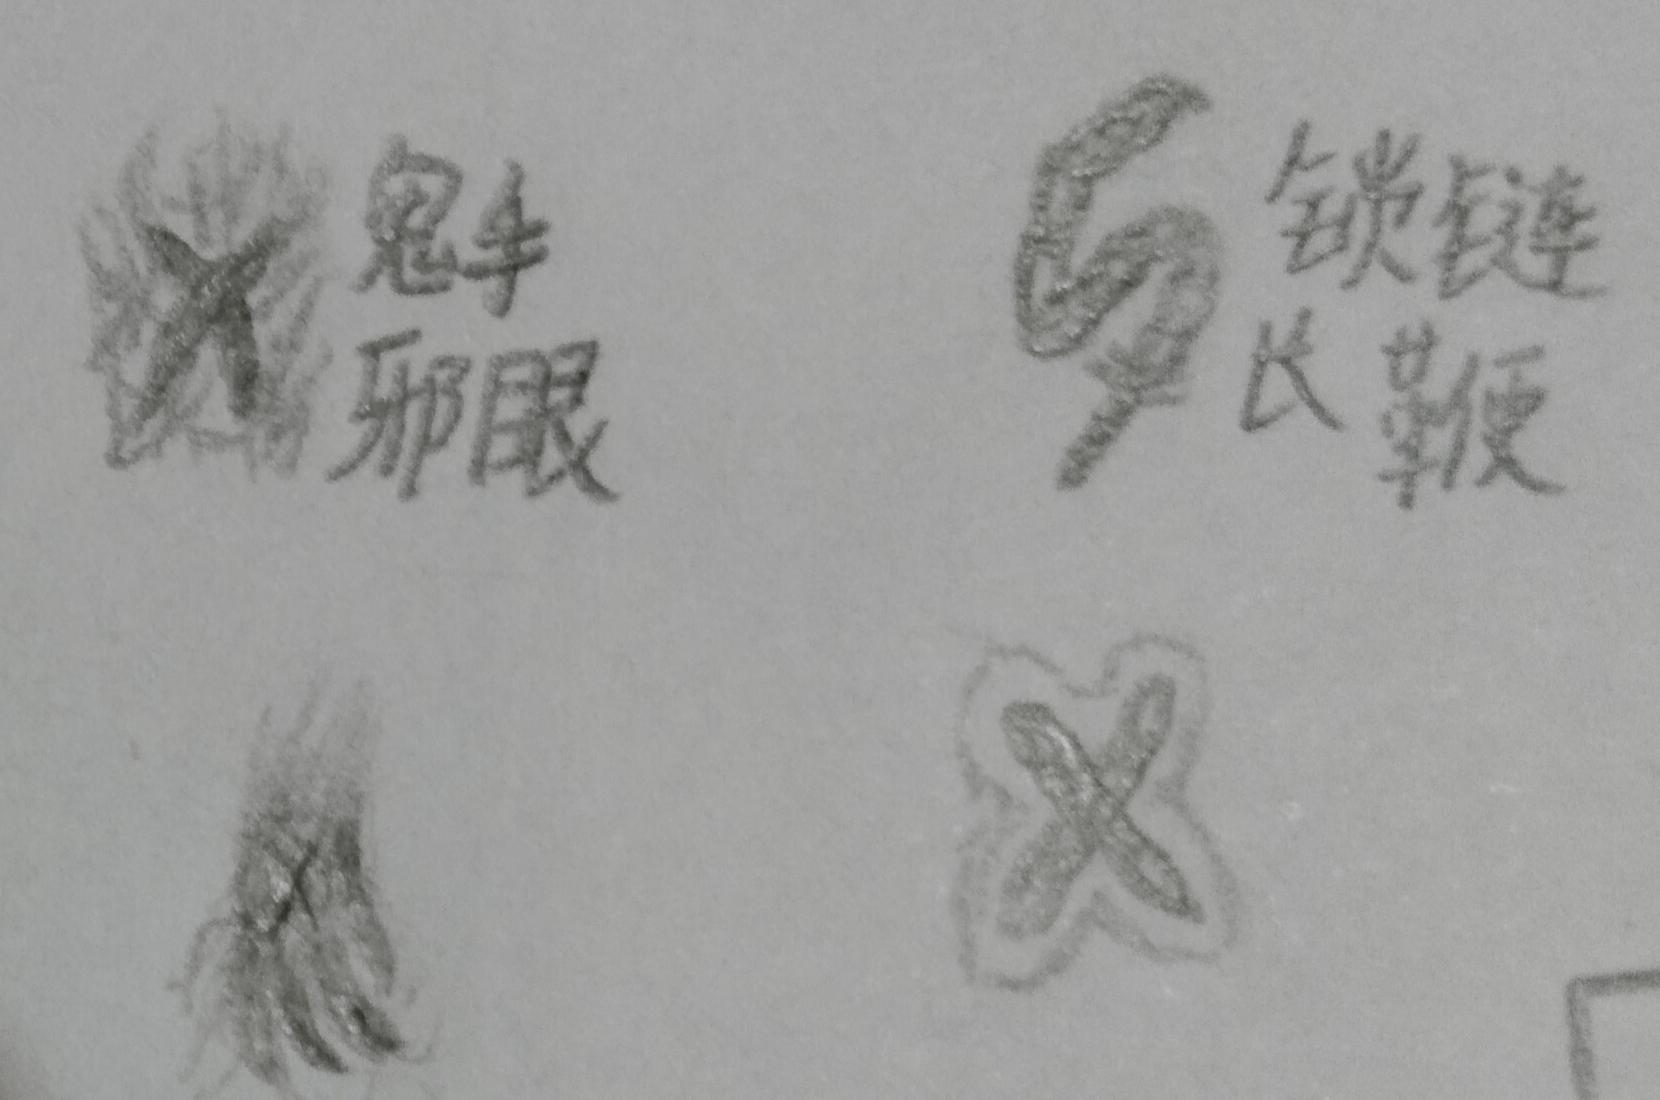 鬼手
邪眼
锁链
长鞭